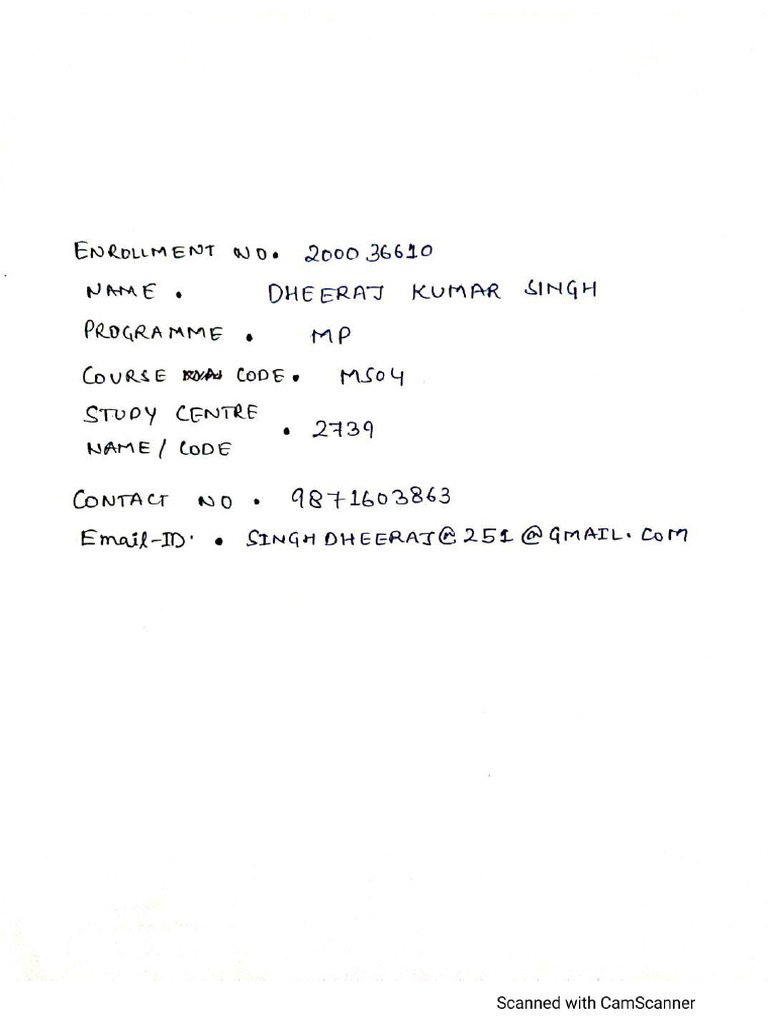 ENROLLMENT NO. 200036610
NAME . DHEERAJ KUMAR SINGH
PROGRAMME . MP
COURSE CODE. MS04
STUDY CENTRE
. 2739
NAME/CODE
CONTACT NO . 9871603863
Email-ID . SINGHDHEERAJ@251@GMAIL.COM
Scanned with CamScanner